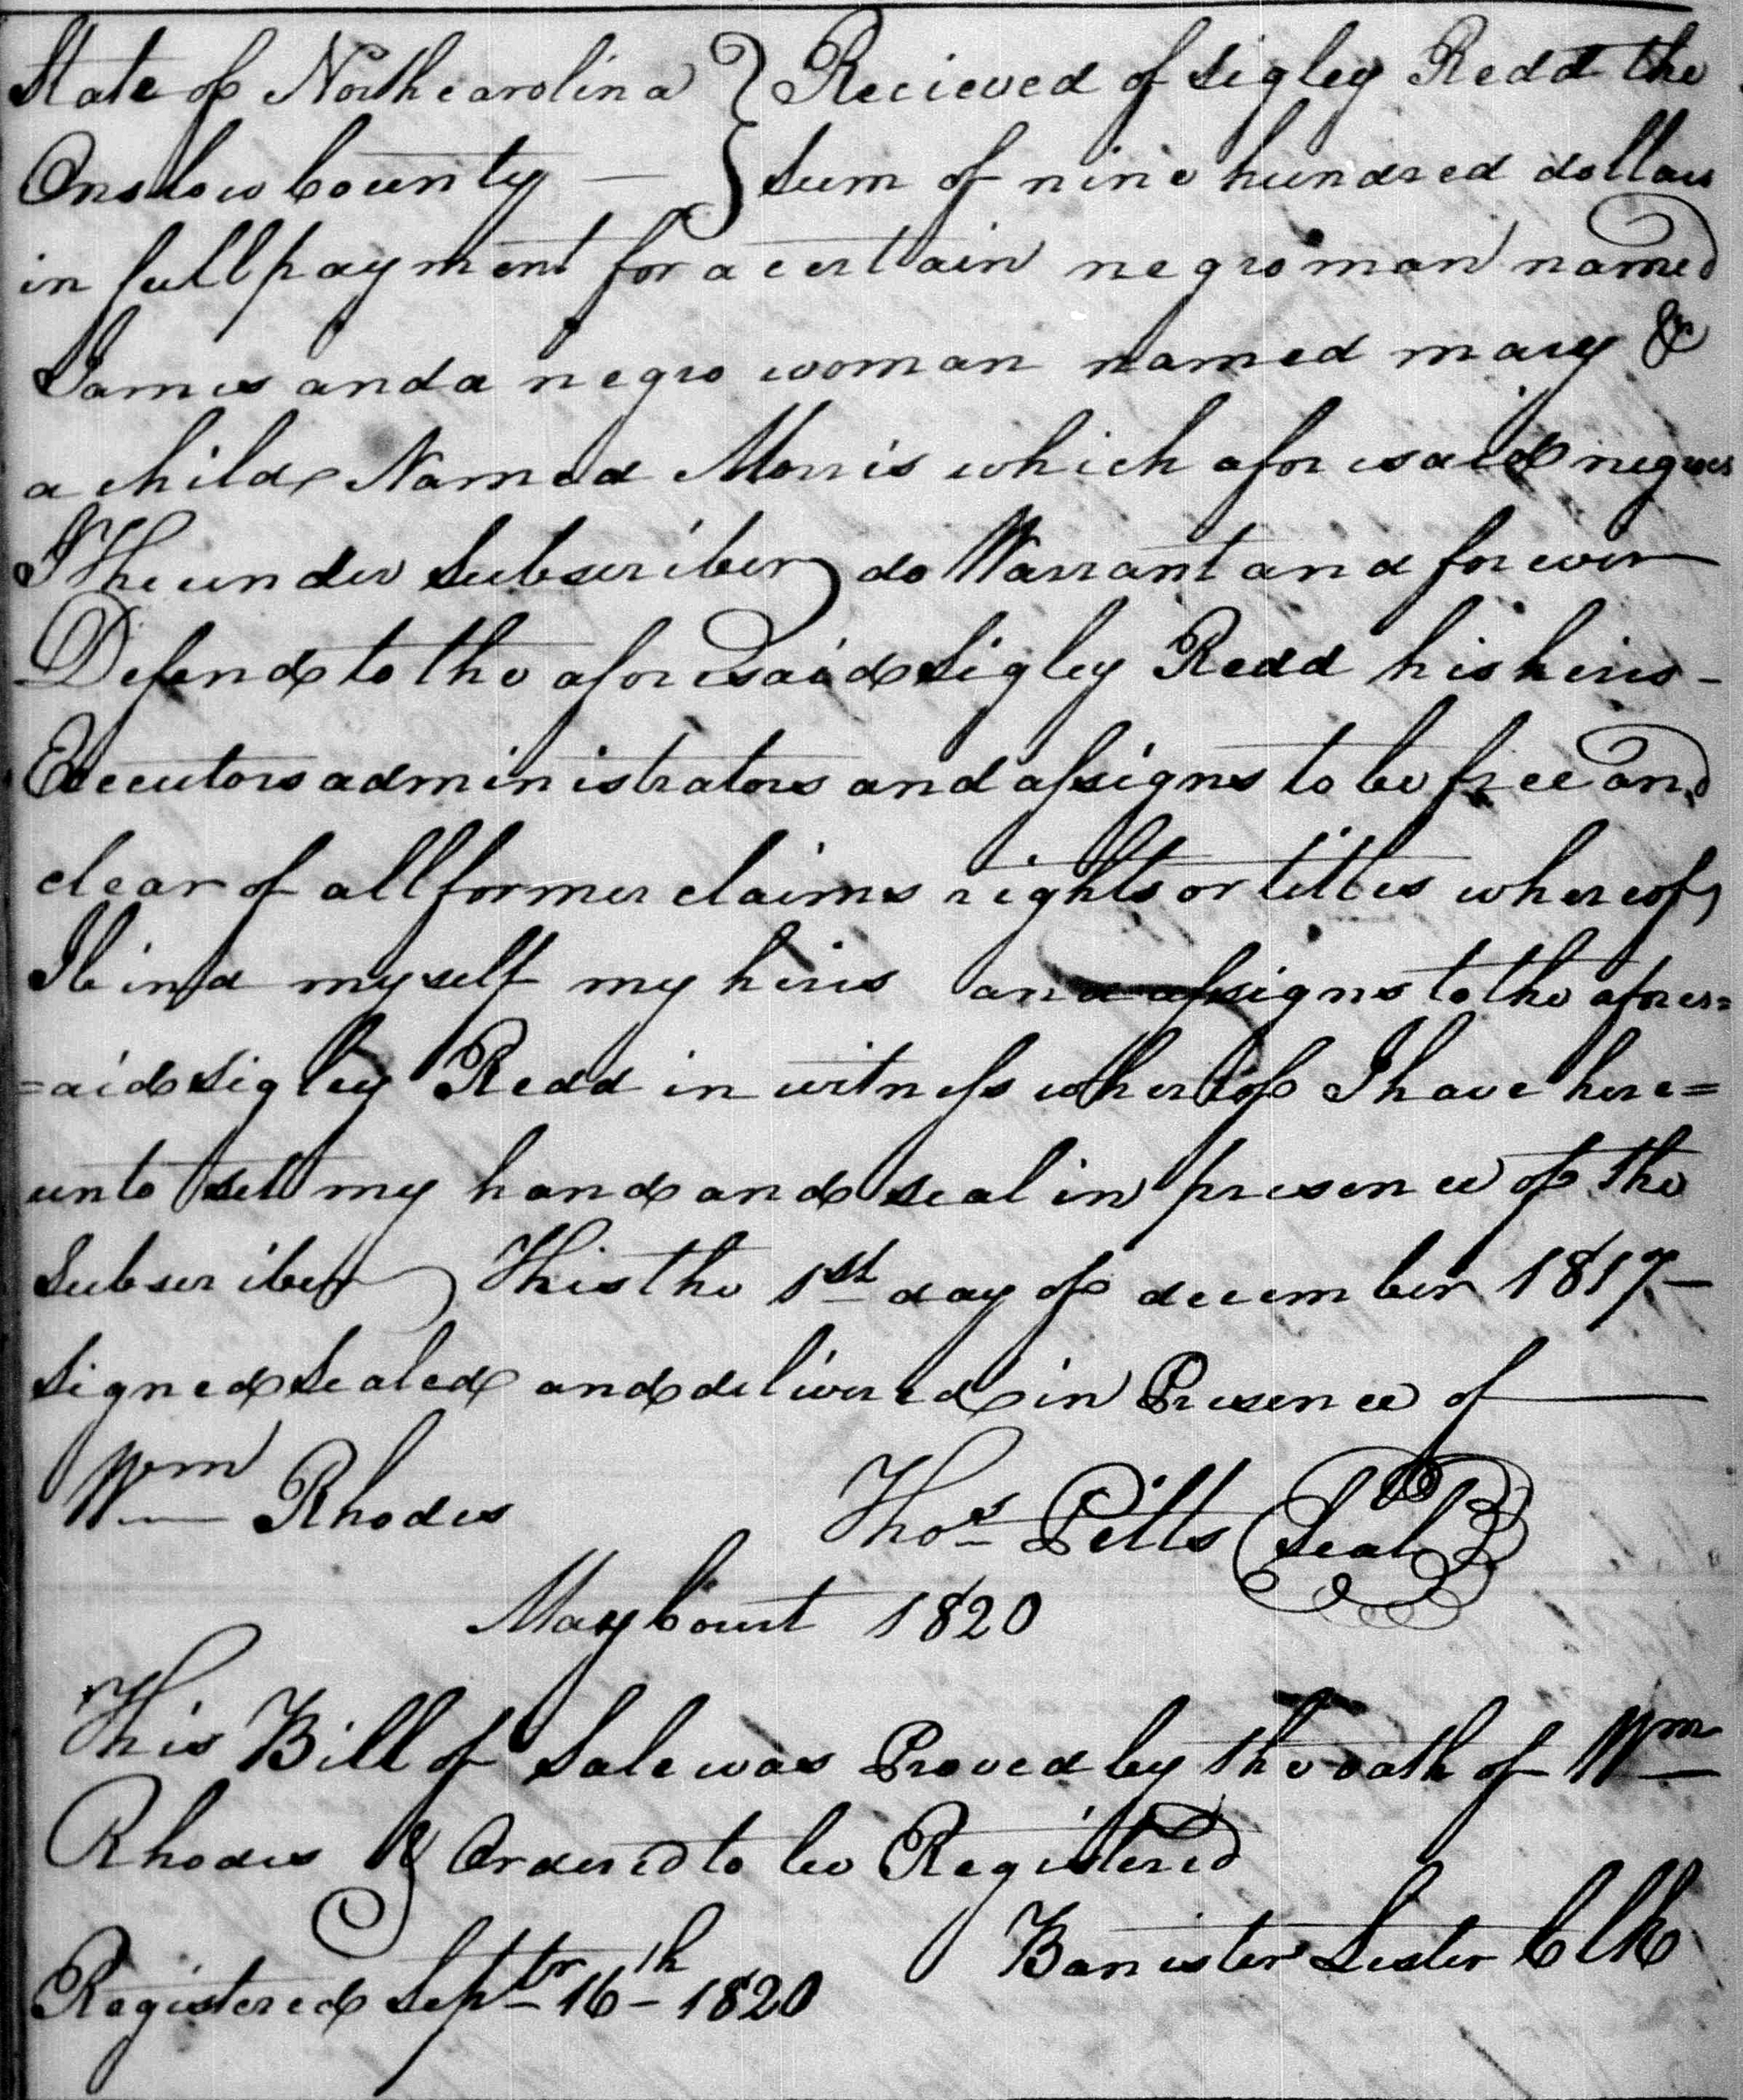 State of Northcarolina } Recieved of Sigley Redd the
Onslow County — } Sum of nine hundred dollars
in full payment for a certain negro man named
James and a negro woman named mary &
a child Named Morris which aforesaid negroes
I The under Subscriber do Warrant and forever
Defend to the aforesaid Sigley Redd his heirs -
Executors administrators and assigns to be free and
clear of all former claims rights or titles whereof
I bind myself my heirs and assigns to the afores=
=aid Sigley Redd in witness whereof I have here=
unto set my hand and seal in presence of the
Subscriber This the 1st day of december 1817—
Signed Sealed and delivered in Presence of —
Wm Rhodes Thos Pitts (Seal)
May Court 1820
This Bill of Sale was Proved by the oath of Wm
Rhodes & Ordered to be Registered
Banister Lester Clk
Registered Septr 16th 1820